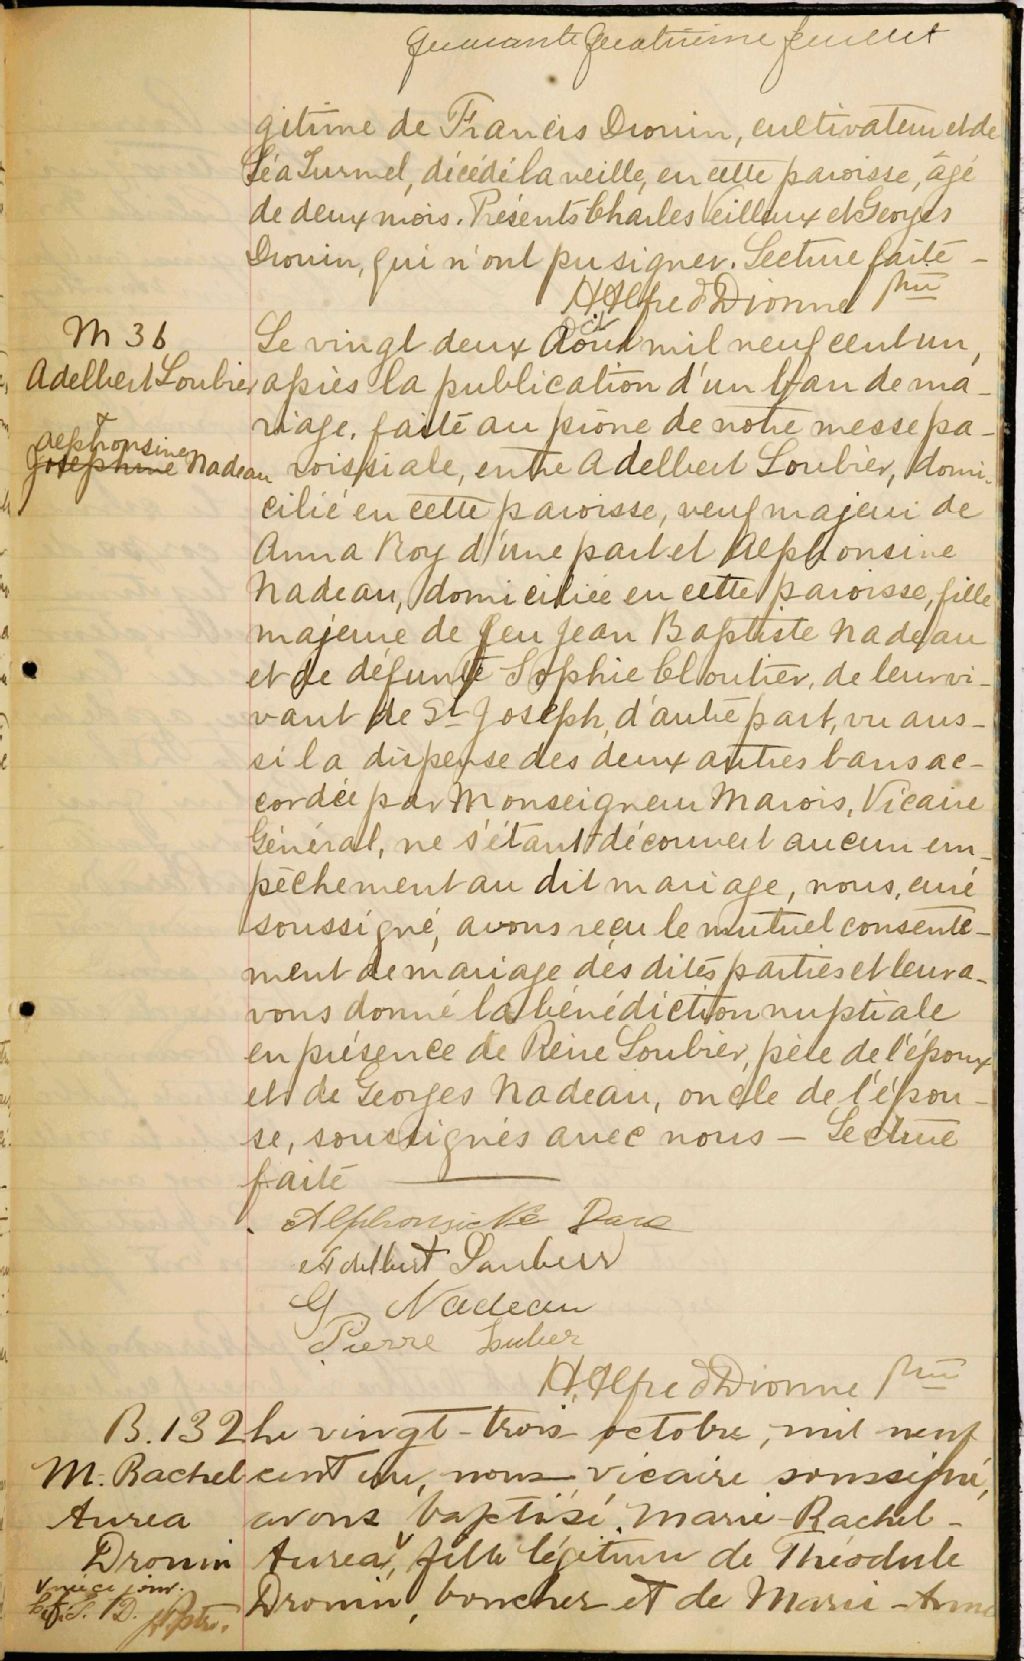 quarante quatrième feuillet
gitime de Francis Drouin, cultivateur et de
Léa Turmel, décédé la veille, en cette paroisse, âgé
de deux mois. Présents Charles Veilleux et Georges
Drouin, qui n'ont pu signer. Lecture faite –
H. Alfred Dionne Ptre
M 36
Adelbert Loubier
&
Alphonsine
Josephine Nadeau
Oct
Le vingt deux Août mil neuf cent un,
après la publication d'un ban de ma-
riage, faite au prône de notre messe pa-
roissiale, entre Adelbert Loubier, domi-
cilié en cette paroisse, veuf majeur de
Anna Roy d'une part et Alphonsine
Nadeau, domiciliée en cette paroisse, fille
majeure de feu Jean Baptiste Nadeau
et de défunte Sophie Cloutier, de leur vi-
vant de St Joseph, d'autre part, vu aus-
si la dispense des deux autres bans ac-
cordée par Monseigneur Marois, Vicaire
Général, ne s'étant découvert aucun em-
pêchement au dit mariage, nous, curé
soussigné, avons reçu le mutuel consente-
ment de mariage des dites parties et leur a-
vons donné la bénédiction nuptiale
en présence de Pierre Loubier, père de l'époux
et de Georges Nadeau, oncle de l'épou-
se, soussignés avec nous – Lecture
faite
Adelbert Loubier
G Nadeau
Pierre Lubier
H. Alfred Dionne Ptre
B. 132
M. Rachel
Aurea
Drouin
v née ce jour.
J. D. Ptre.
Le vingt-trois octobre, mil neuf
cent un, nous vicaire soussigné,
avons baptisé Marie-Rachel-
Aurea v, fille légitime de Théodule
Drouin, boucher et de Marie-Anna